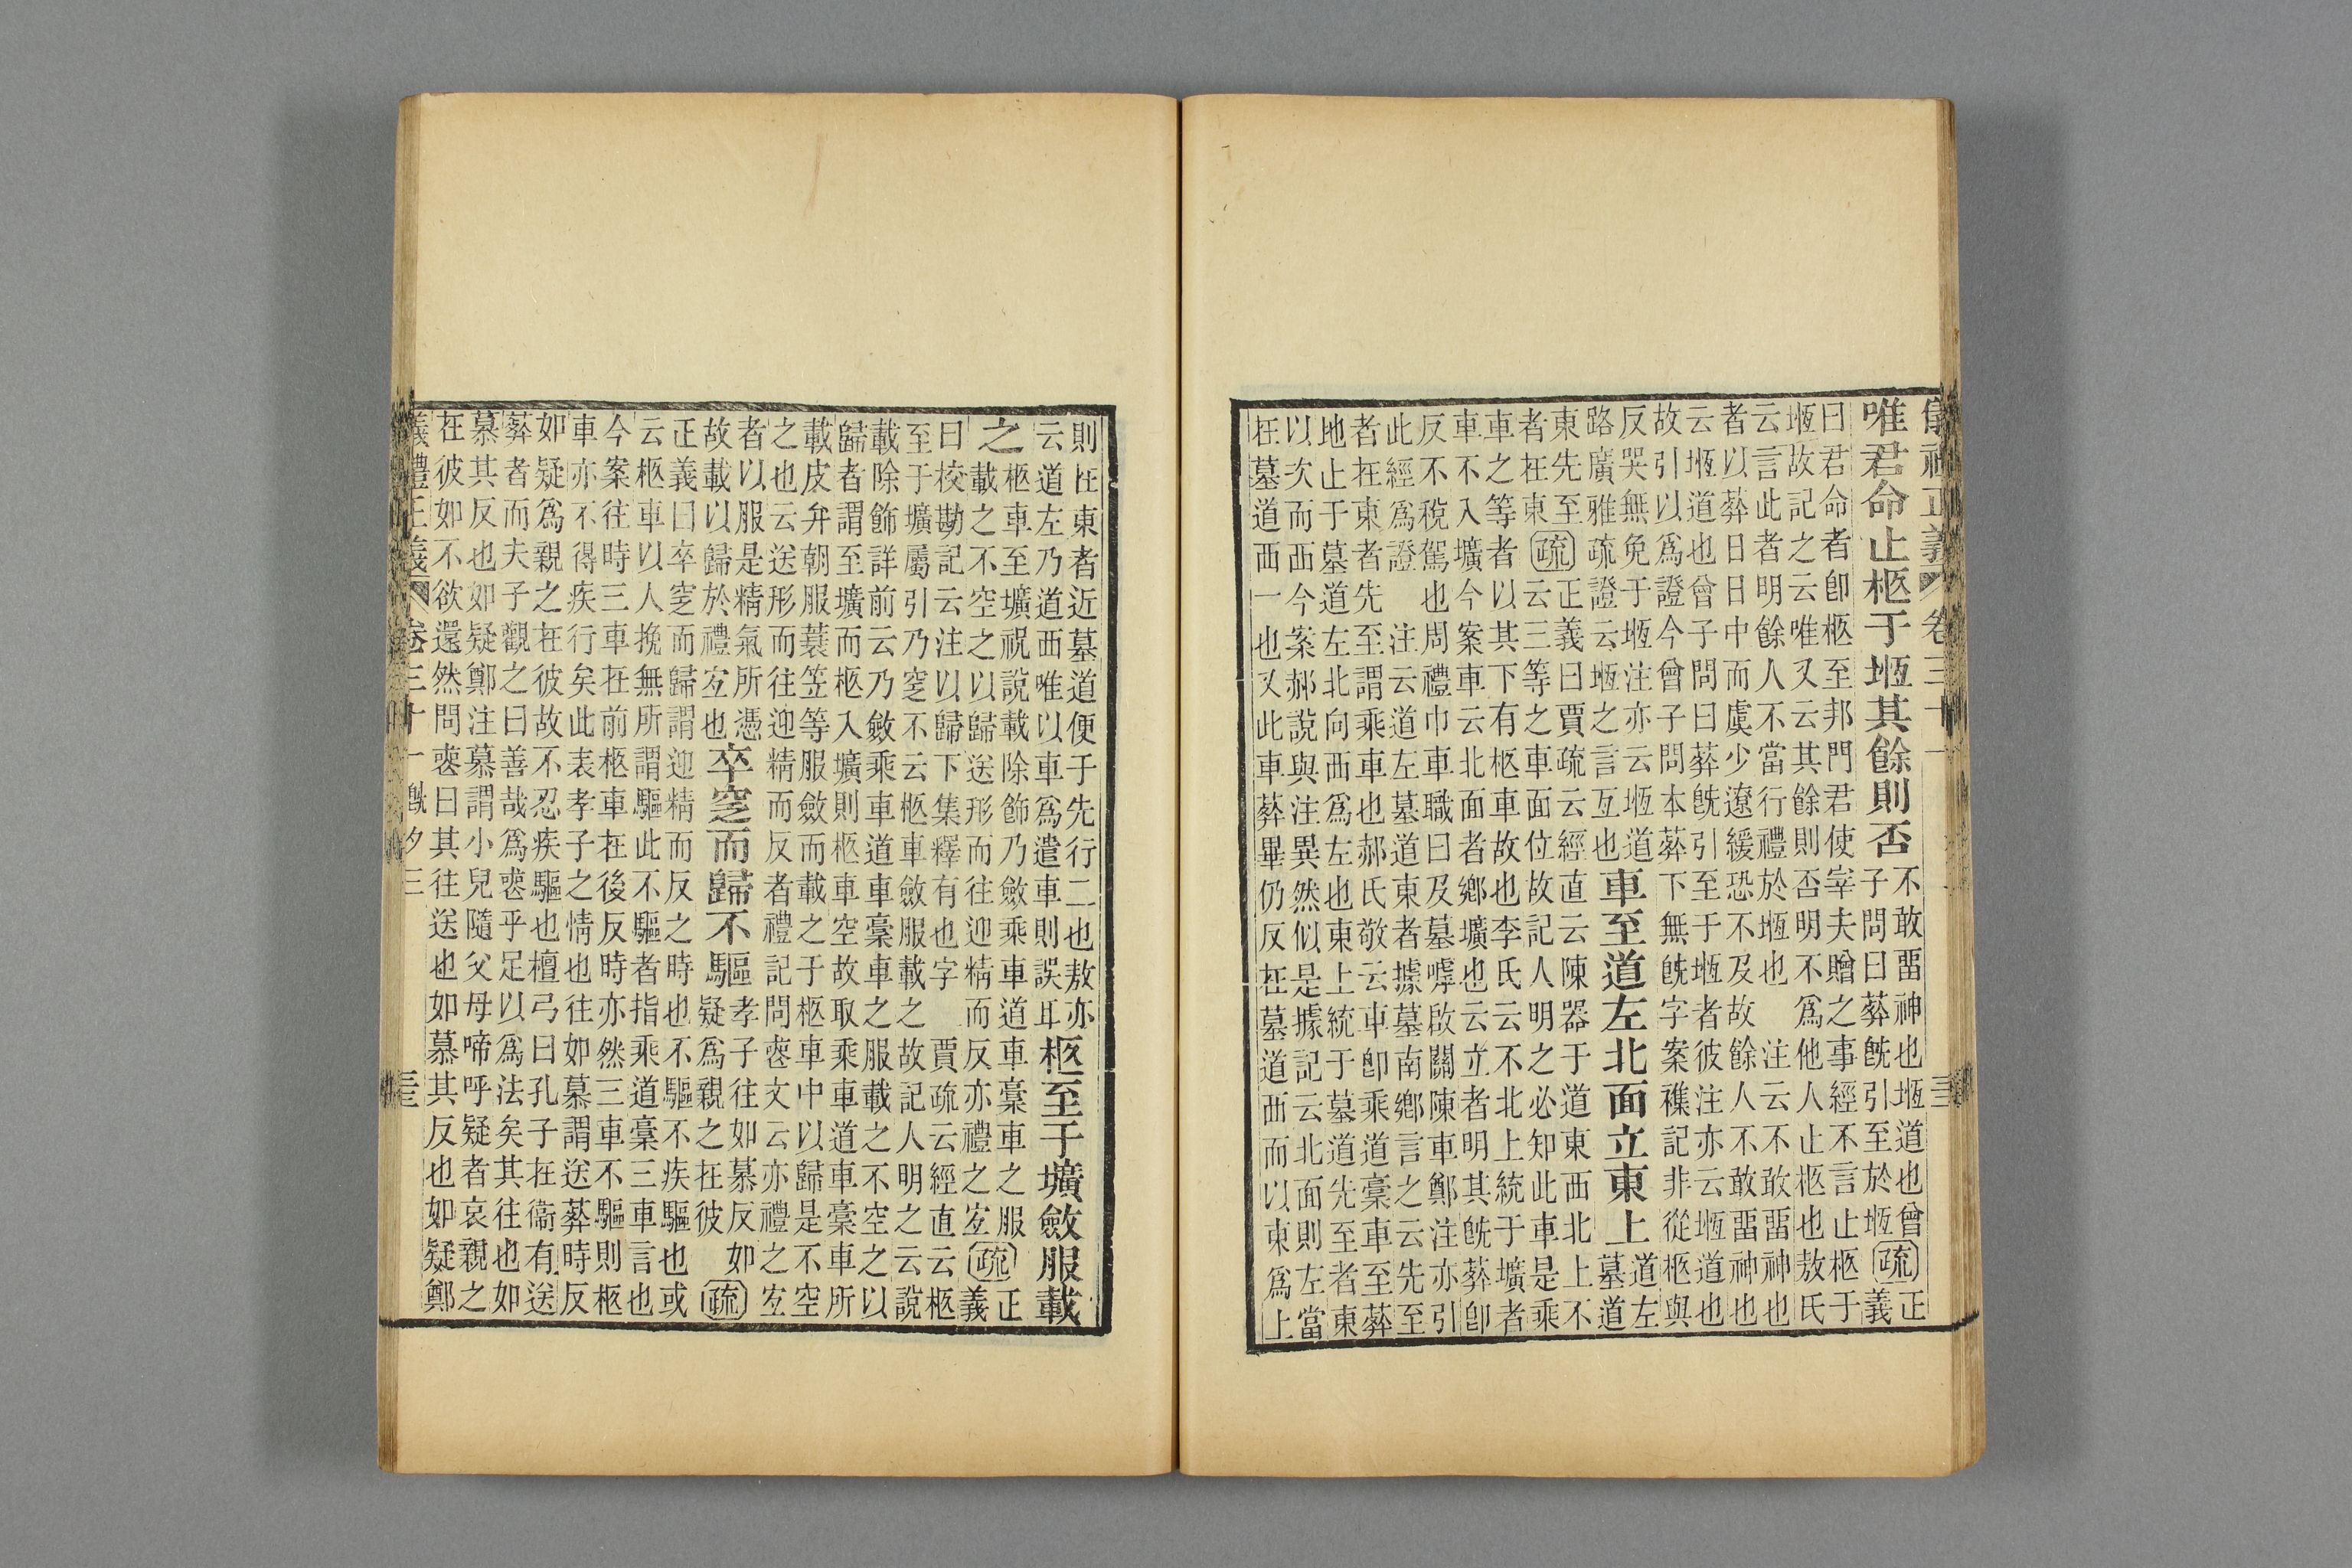 儀禮正義 卷三十一
唯君命止柩于堩其餘則否
不敢畱神也堩道也曾
子問曰葬旣引至於堩
疏 正義
曰君命者卽柩至邦門君使宰夫贈之事經不言止柩于
堩故記之云唯又云其餘則否明不爲他人止柩也敖氏
云言此者明餘人不當行禮於堩也　注云不敢畱神也
者以葬日日中而虞少遼緩恐不及故餘人不敢畱神也
云堩道也曾子問曰葬旣引至于堩者彼注亦云堩道也
故引以爲證今曾子問本葬下無旣字案襍記非從柩與
反哭無免于堩注亦云堩道
路廣雅疏證云堩之言亙也
車至道左北面立東上
道左
墓道
東先至
者在東
疏
正義曰賈疏云經直云陳器于道東西北上不
云三等之車面位故記人明之必知此車是乘
車之等者以其下有柩車故也李氏云不北上統于壙者
車不入壙今案車云北面者鄉壙也云立者明其旣葬卽
反不稅駕也周禮巾車職曰及墓嘑啟關陳車鄭注亦引
此經爲證　注云道左墓道東者據墓南鄉言之云先至
者在東者先至謂乘車也郝氏敬云車卽乘道稾車至葬
地止于墓道左北向西爲左也東上統于墓道先至者東
以次而西今案郝說與注異然似是據記云北面則左當
在墓道西一也又此車葬畢仍反在墓道西而以東爲上
則在東者近墓道便于先行二也敖亦
云道左乃道西唯以車爲遣車則誤耳
柩至于壙斂服載
之
柩車至壙祝說載除飾乃斂乘車道車稾車之服
載之不空之以歸送形而往迎精而反亦禮之宜
疏 正義
曰校勘記云注以歸下集釋有也字　賈疏云經直云柩
至于壙屬引乃窆不云柩車斂服載之故記人明之云說
載除飾詳前云乃斂乘車道車稾車之服載之不空之以
歸者謂至壙而柩入壙則柩車空故取乘車道車稾車所
載皮弁朝服蓑笠等服斂而載之于柩車中以歸是不空
之也云送形而往迎精而反者禮記問喪文云亦禮之宜
者以服是精氣所憑
故載以歸於禮宜也
卒窆而歸不驅
孝子往如慕反如
疑爲親之在彼
疏
正義曰卒窆而歸謂迎精而反之時也不驅不疾驅也或
云柩車以人挽無所謂驅此不驅者指乘道稾三車言也
今案往時三車在前柩車在後反時亦然三車不驅則柩
車亦不得疾行矣此表孝子之情也往如慕謂送葬時反
如疑爲親之在彼故不忍疾驅也檀弓曰孔子在衞有送
葬者而夫子觀之曰善哉爲喪乎足以爲法矣其往也如
慕其反也如疑鄭注慕謂小兒隨父母啼呼疑者哀親之
在彼如不欲還然問喪曰其往送也如慕其反也如疑鄭
儀禮正義 卷三十一 旣夕三